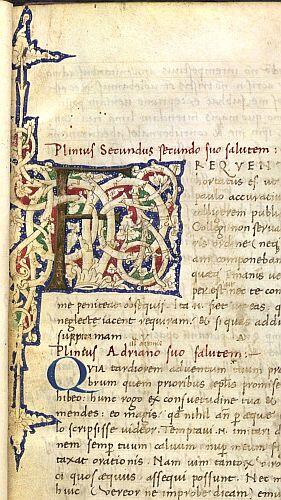 Plinius Secundus secundo suo salutem:
FREQVEN
hortatus es ut
paulo accuratiu
colligerem publi
Collegi non serva
ris ordine (neq
am componebam
quaeq manus ve
per est nec te con
me peniteat obsequii. Ita n. fiet ut eas, q
neglectae iacent requiram. & si quas addi
supprimam.
Plinius Adriano suo salutem:
QVIA tardiorem adventum tuum pr
brum quem prioribus eplis promise
hibeo. hunc rogo ex consuetudine tua &
mendes: eo magis, q nihil an p aeque
lo scripsisse videor. Temptavi n. imitari d
nem semp tuum calvum nup meum fi
taxat orationis. Nam vim tantor vir
ci quos aequus assequi possunt. Nec m
hunc (vereor ne improbe dicam)